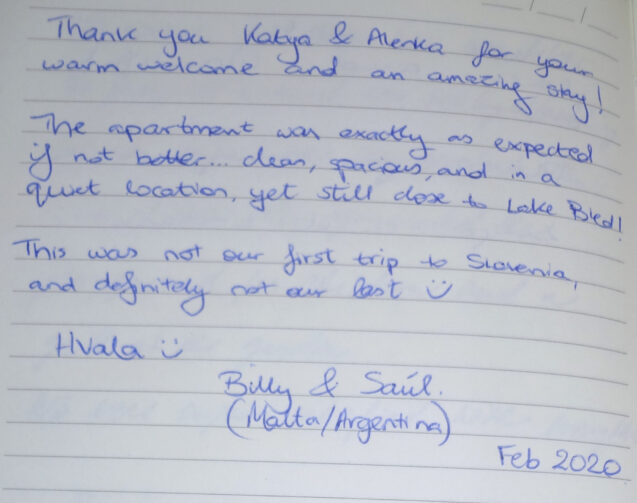 Thank you Katya & Alenka for your
warm welcome and an amazing stay!
The apartment was exactly as expected
if not better... clean, spacious, and in a
quiet location, yet still close to Lake Bled!
This was not our first trip to Slovenia,
and definitely not our last :)
Hvala :)
Billy & Saúl.
(Malta/Argentina)
Feb 2020